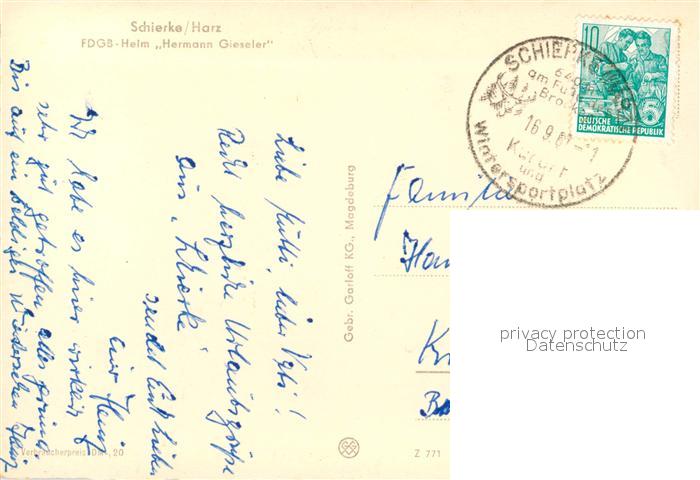 Schierke/Harz
FDGB-Heim „Hermann Gieseler"
SCHIERKE
am Fuße
Brocken
16.9.61-11
Kurort
und
Wintersportplatz
10
5
DEUTSCHE
DEMOKRATISCHE REPUBLIK
Liebe Mutti, lieber Vati!
Recht herzliche Urlaubsgrüße
aus „Schierke"
sendet Euch Lieben
euer Heinz
Wir habe es hier wirklich
sehr gut getroffen, alles prima.
Bis auf ein baldiges Wiedersehen Heinz
Gebr. Garloff KG., Magdeburg
Familie
Verbraucherpreis DM -,20
Z 771
privacy protection
Datenschutz